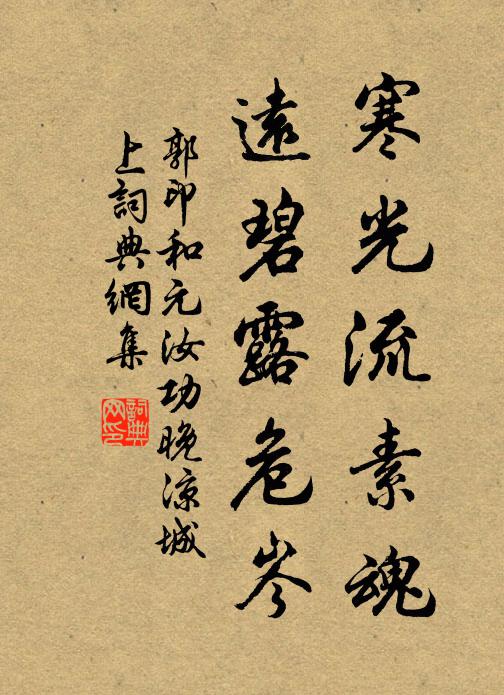 寒光流素魂
遠碧露危岑
郭印和元汝功晚涼城
上詞典網集
詞典
网印